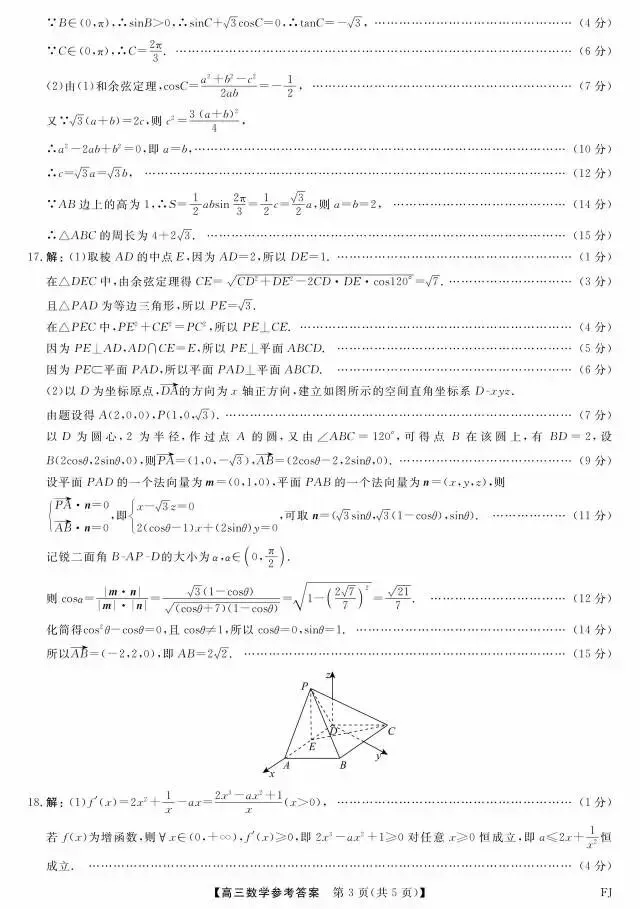 ∵B∈(0,π),∴sinB>0,∴sinC+√3cosC=0,∴tanC=-√3, ……………………(4 分)
∵C∈(0,π),∴C=2π/3. ……………………(6 分)
(2)由(1)和余弦定理,cosC=(a²+b²-c²)/2ab=-1/2, ……………………(7 分)
又∵√3(a+b)=2c,则 c²=3(a+b)²/4,
∴a²-2ab+b²=0,即 a=b, ……………………(10 分)
∴c=√3a=√3b, ……………………(12 分)
∵AB 边上的高为 1,∴S=1/2absin2π/3=1/2c=√3/2a,则 a=b=2, ……………………(14 分)
∴△ABC 的周长为 4+2√3. ……………………(15 分)
17.解:(1)取棱 AD 的中点 E,因为 AD=2,所以 DE=1. ……………………(1 分)
在△DEC 中,由余弦定理得 CE=√(CD²+DE²-2CD·DE·cos120°)=√7. ……………………(3 分)
且△PAD 为等边三角形,所以 PE=√3.
在△PEC 中,PE²+CE²=PC²,所以 PE⊥CE. ……………………(4 分)
因为 PE⊥AD,AD∩CE=E,所以 PE⊥平面 ABCD. ……………………(5 分)
因为 PE⊂平面 PAD,所以平面 PAD⊥平面 ABCD. ……………………(6 分)
(2)以 D 为坐标原点,DA→的方向为 x 轴正方向,建立如图所示的空间直角坐标系 D-xyz.
由题设得 A(2,0,0),P(1,0,√3). ……………………(7 分)
以 D 为圆心,2 为半径,作过点 A 的圆,又由∠ABC=120°,可得点 B 在该圆上,有 BD=2,设
B(2cosθ,2sinθ,0),则PA→=(1,0,-√3),AB→=(2cosθ-2,2sinθ,0). ……………………(9 分)
设平面 PAD 的一个法向量为 m=(0,1,0),平面 PAB 的一个法向量为 n=(x,y,z),则
{PA→·n=0 AB→·n=0,即{x-√3z=0 2(cosθ-1)x+(2sinθ)y=0,可取 n=(√3sinθ,√3(1-cosθ),sinθ). ……………………(11 分)
记锐二面角 B-AP-D的大小为 α,α∈(0,π/2).
则 cosα=|m·n|/(|m|·|n|)=√3(1-cosθ)/√((cosθ+7)(1-cosθ))=√(1-(2√7/7)²)=√21/7. ……………………(12 分)
化简得cos²θ-cosθ=0,且 cosθ≠1,所以 cosθ=0,sinθ=1. ……………………(14 分)
所以AB→=(-2,2,0),即 AB=2√2. ……………………(15 分)
z
P
D
C
E
y
A
B
x
18.解:(1)f′(x)=2x²+1/x-ax=(2x³-ax²+1)/x(x>0), ……………………(1 分)
若 f(x)为增函数,则∀x∈(0,+∞),f′(x)≥0,即 2x³-ax²+1≥0 对任意 x≥0 恒成立,即 a≤2x+1/x²恒
成立. ……………………(4 分)
【高三数学参考答案 第 3 页(共 5 页)】 FJ